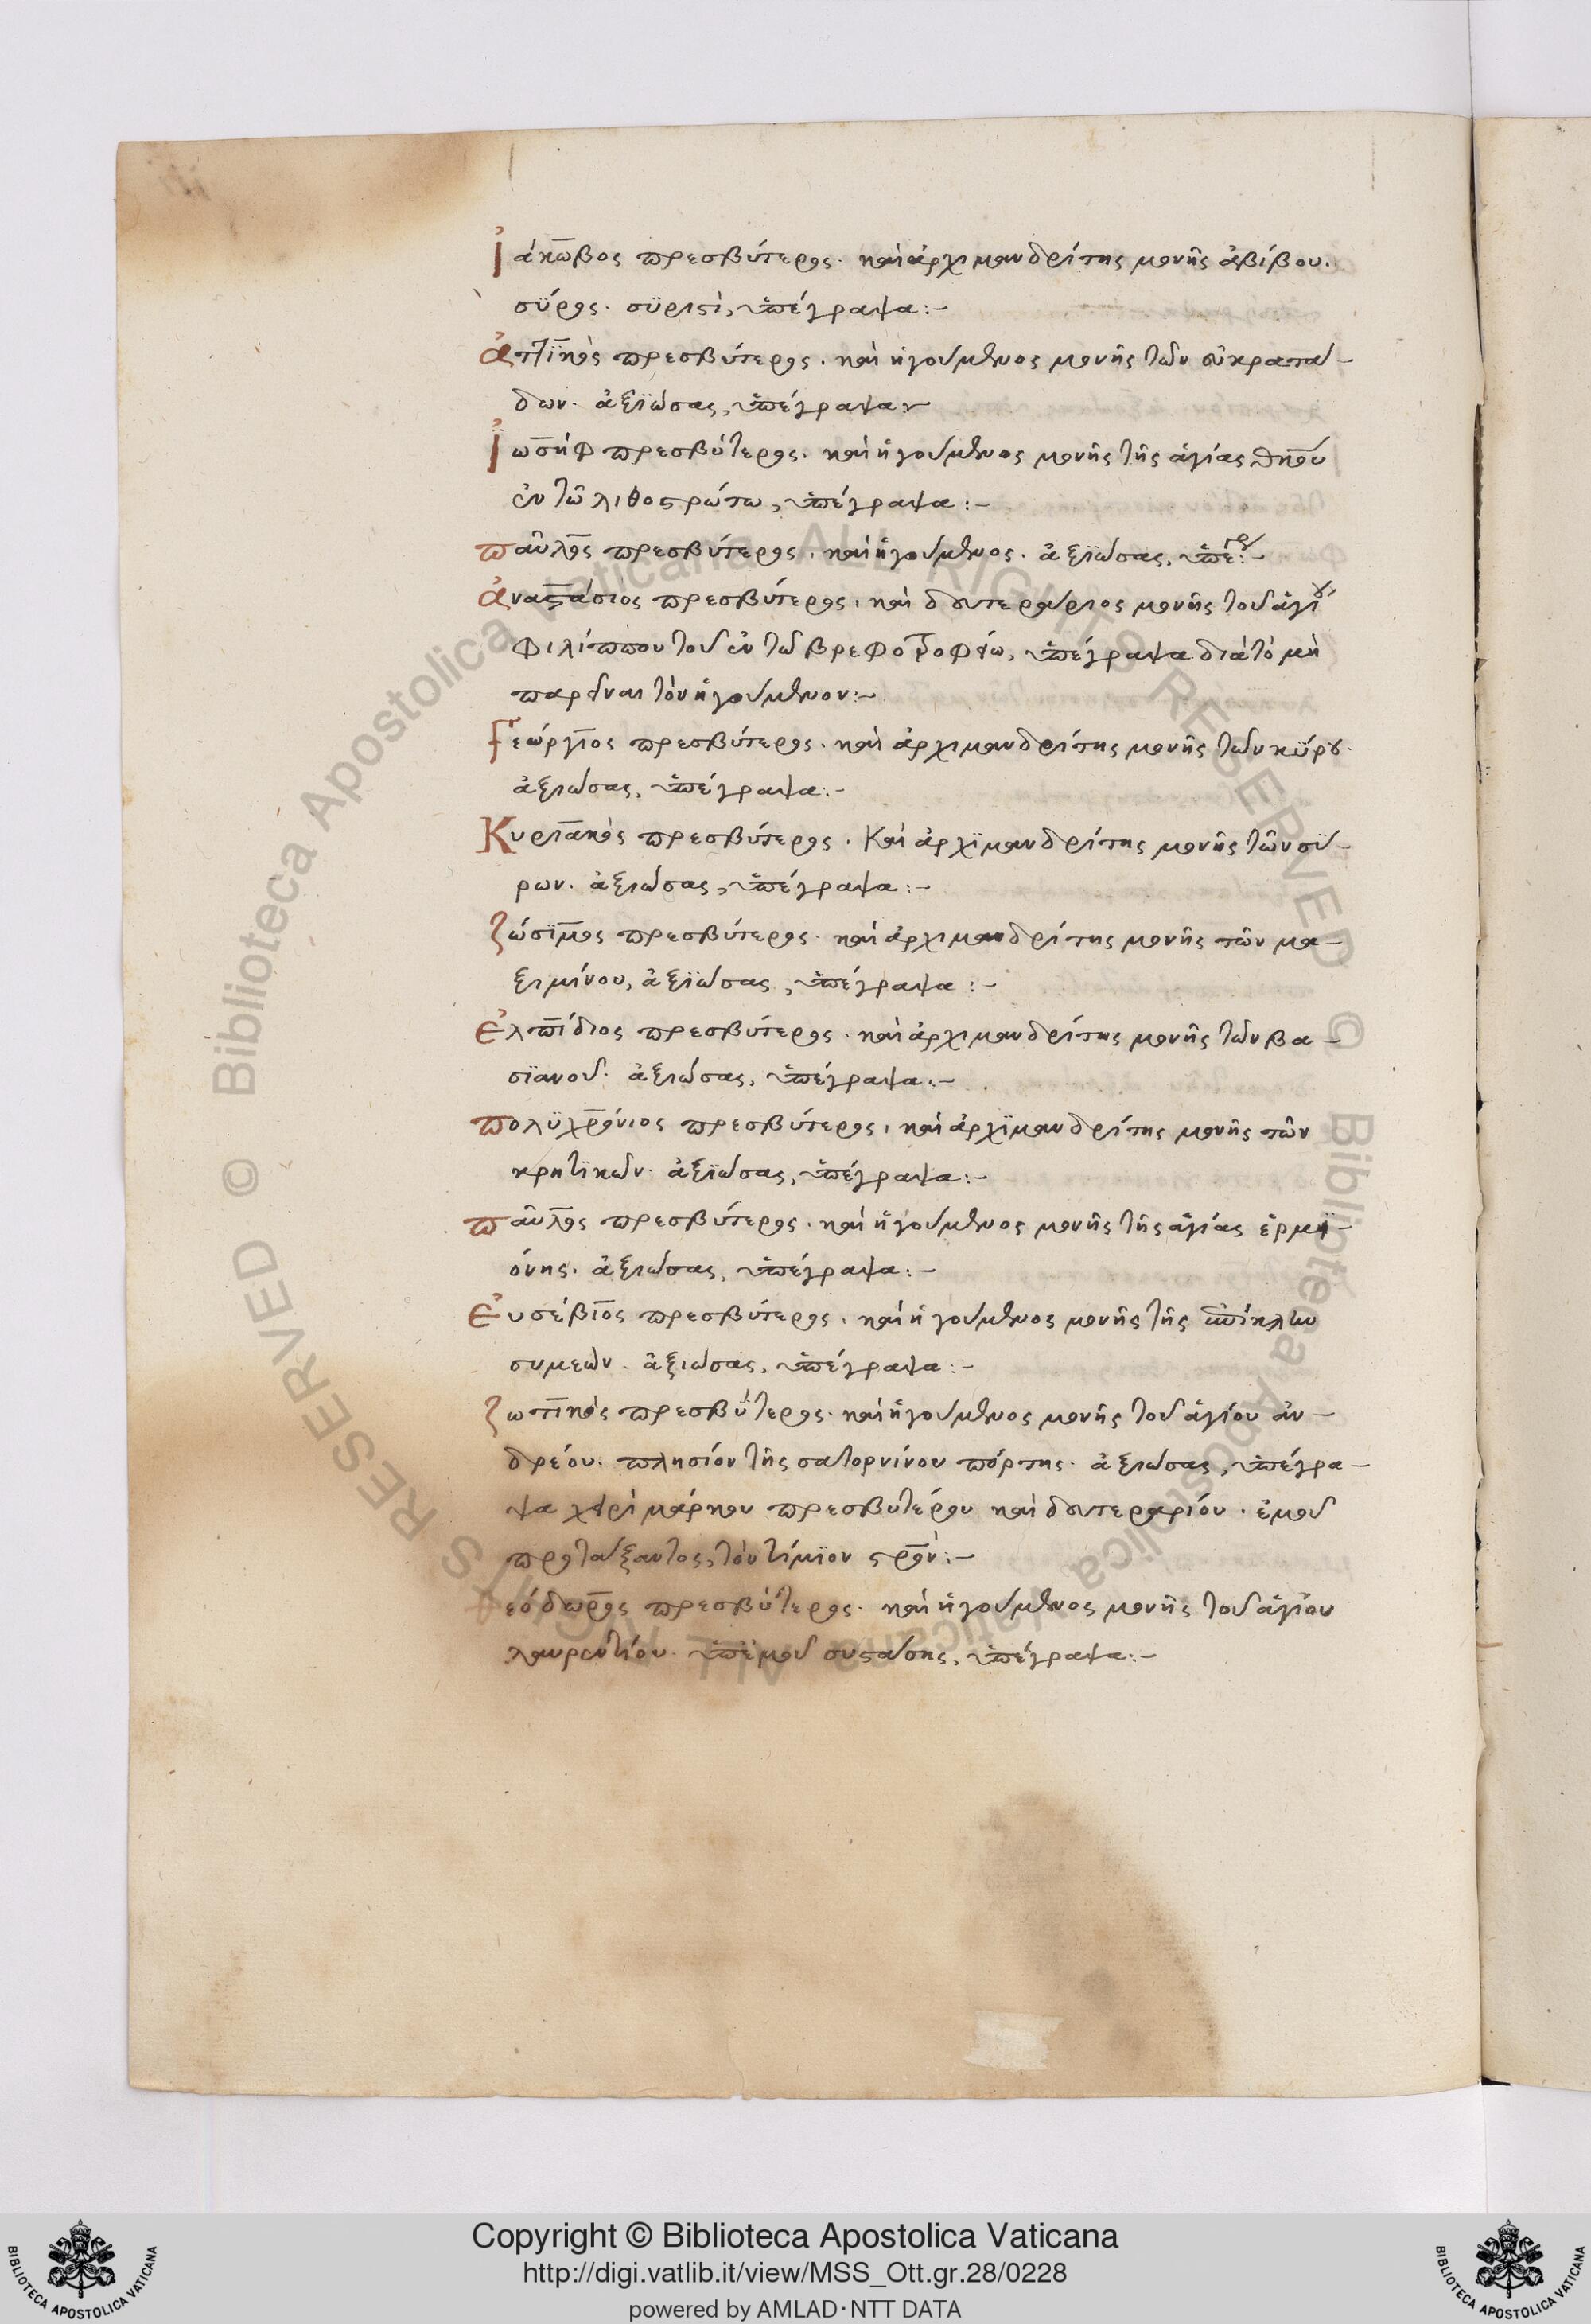 Ἰάκωβος πρεσβύτερος· καὶ ἀρχιμανδρίτης μονῆς ἀβίβου.
σύρος· συριστὶ, ὑπέγραψα:-
ἀττϊκὸς πρεσβύτερος· καὶ ἡγούμενος μονῆς τῶν
δων· ἀξϊώσας, ὑπέγραψα:-
Ἰωσὴφ πρεσβύτερος· καὶ ἡγούμενος μονῆς τῆς ἁγίας
ἐν τῶ λιθοστρώτω, ὑπέγραψα:-
παῦλος πρεσβύτερος· καὶ ἡγούμενος· ἀξϊώσας, ὑπέγρ:-
ἀναστάσιος πρεσβύτερος, καὶ δευτεράριος μονῆς τοῦ ἁγίου
φιλίππου τοῦ ἐν τῶ βρεφοτροφείω, ὑπέγραψα διὰ τὸ μὴ
παρεῖναι τὸν ἡγούμενον:-
Γεώργιος πρεσβύτερος· καὶ ἀρχιμανδρίτης μονῆς τῶν κύρου·
ἀξιώσας, ὑπέγραψα:-
Κυριακὸς πρεσβύτερος· Καὶ ἀρχϊμανδρίτης μονῆς τῶν σύ-
ρων· ἀξιώσας, ὑπέγραψα:-
ζώσϊμος πρεσβύτερος· καὶ ἀρχιμανδρίτης μονῆς τῶν μα-
ξιμίνου, ἀξϊώσας, ὑπέγραψα:-
ἐλπίδιος πρεσβύτερος· καὶ ἀρχιμανδρίτης μονῆς τῶν βα-
σϊανοῦ· ἀξιώσας, ὑπέγραψα:-
πολϋχρόνιος πρεσβύτερος, καὶ ἀρχϊμανδρίτης μονῆς τῶν
κρητϊκῶν· ἀξϊώσας, ὑπέγραψα:-
παῦλος πρεσβύτερος· καὶ ἡγούμενος μονῆς τῆς ἁγίας ἑρμϊ-
όνης· ἀξιώσας, ὑπέγραψα:-
Εὐσέβιος πρεσβύτερος, καὶ ἡγούμενος μονῆς τῆς ἐπίκλην
συμεὼν· ἀξιώσας, ὑπέγραψα:-
ζωτικὸς πρεσβύτερος· καὶ ἡγούμενος μονῆς τοῦ ἁγίου ἀν-
δρέου· πλησίον τῆς σατορνίνου πόρτης· ἀξιώσας, ὑπέγρα-
ψα χειρὶ μάρκου πρεσβυτέρου καὶ δευτεραρίου· ἐμοῦ
προτάξαντος, τὸν τίμϊον στρον:-
θεόδωρος πρεσβύτερος· καὶ ἡγούμενος μονῆς τοῦ ἁγίου
λαυρεντίου· ὑπ' ἐμοῦ συστάσης, ὑπέγραψα:-
© Biblioteca Apostolica Vaticana ALL RIGHTS RESERVED © Biblioteca Apostolica Vaticana ALL RIGHTS RESERVED
BIBLIOTECA APOSTOLICA VATICANA
Copyright © Biblioteca Apostolica Vaticana
http://digi.vatlib.it/view/MSS_Ott.gr.28/0228
powered by AMLAD·NTT DATA
BIBLIOTECA APOSTOLICA VATICANA